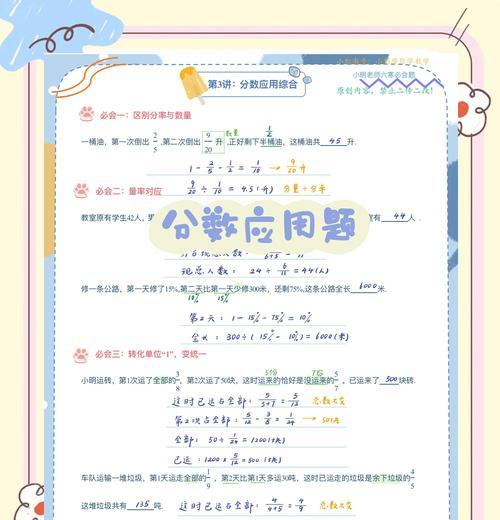 小明老师六寒必会题
原创内容，禁止二传二改！
第3讲：分数应用综合
必会一：区分分率与数量
数量
一桶油，第一次倒出 2/5 ,第二次倒出 9/20 升,正好剩下半桶油，这桶油共 45 升.
1/2
1 - 2/5 - 1/2 = 1/10 → 9/20 升
9/20 ÷ 1/10 = 4.5(升) 分量÷分率
必会二：量率对应
教室原有学生42人，
有 44 人．
分数应用题
现总人数： 24 ÷ 6/11 = 44(人)
修一条公路，第一天修了15%,第二天比第一天少修300米，还剩75%,这条公路全长 6000 米.
10% 15%
第2天：1-15%-75%=10%
全长：300÷(15%-10%)=6000(米)
必会三：转化单位“1”，变统一
小明运转，第1次运了全部的 3/8 ，第2次运了50块，这时运来的恰好是没运来的 5/7 ，已运来了 500 块转.
这时已运占全部： 5/5+7 = 5/12 总数不变
第2次占全部： 5/12 - 3/8 = 1/24 → 50块
全部：50÷ 1/24 =1200(块)
已运：1200× 5/12 =500(块)
车队运输一堆垃圾，第1天运走全部的 1/9 ，第2天比第1天多运30吨，这时已运走的垃圾是余下垃圾的 4/5
这堆垃圾共有 135 吨. 这时已运占全部： 4/4+5 = 4/9 总数不变